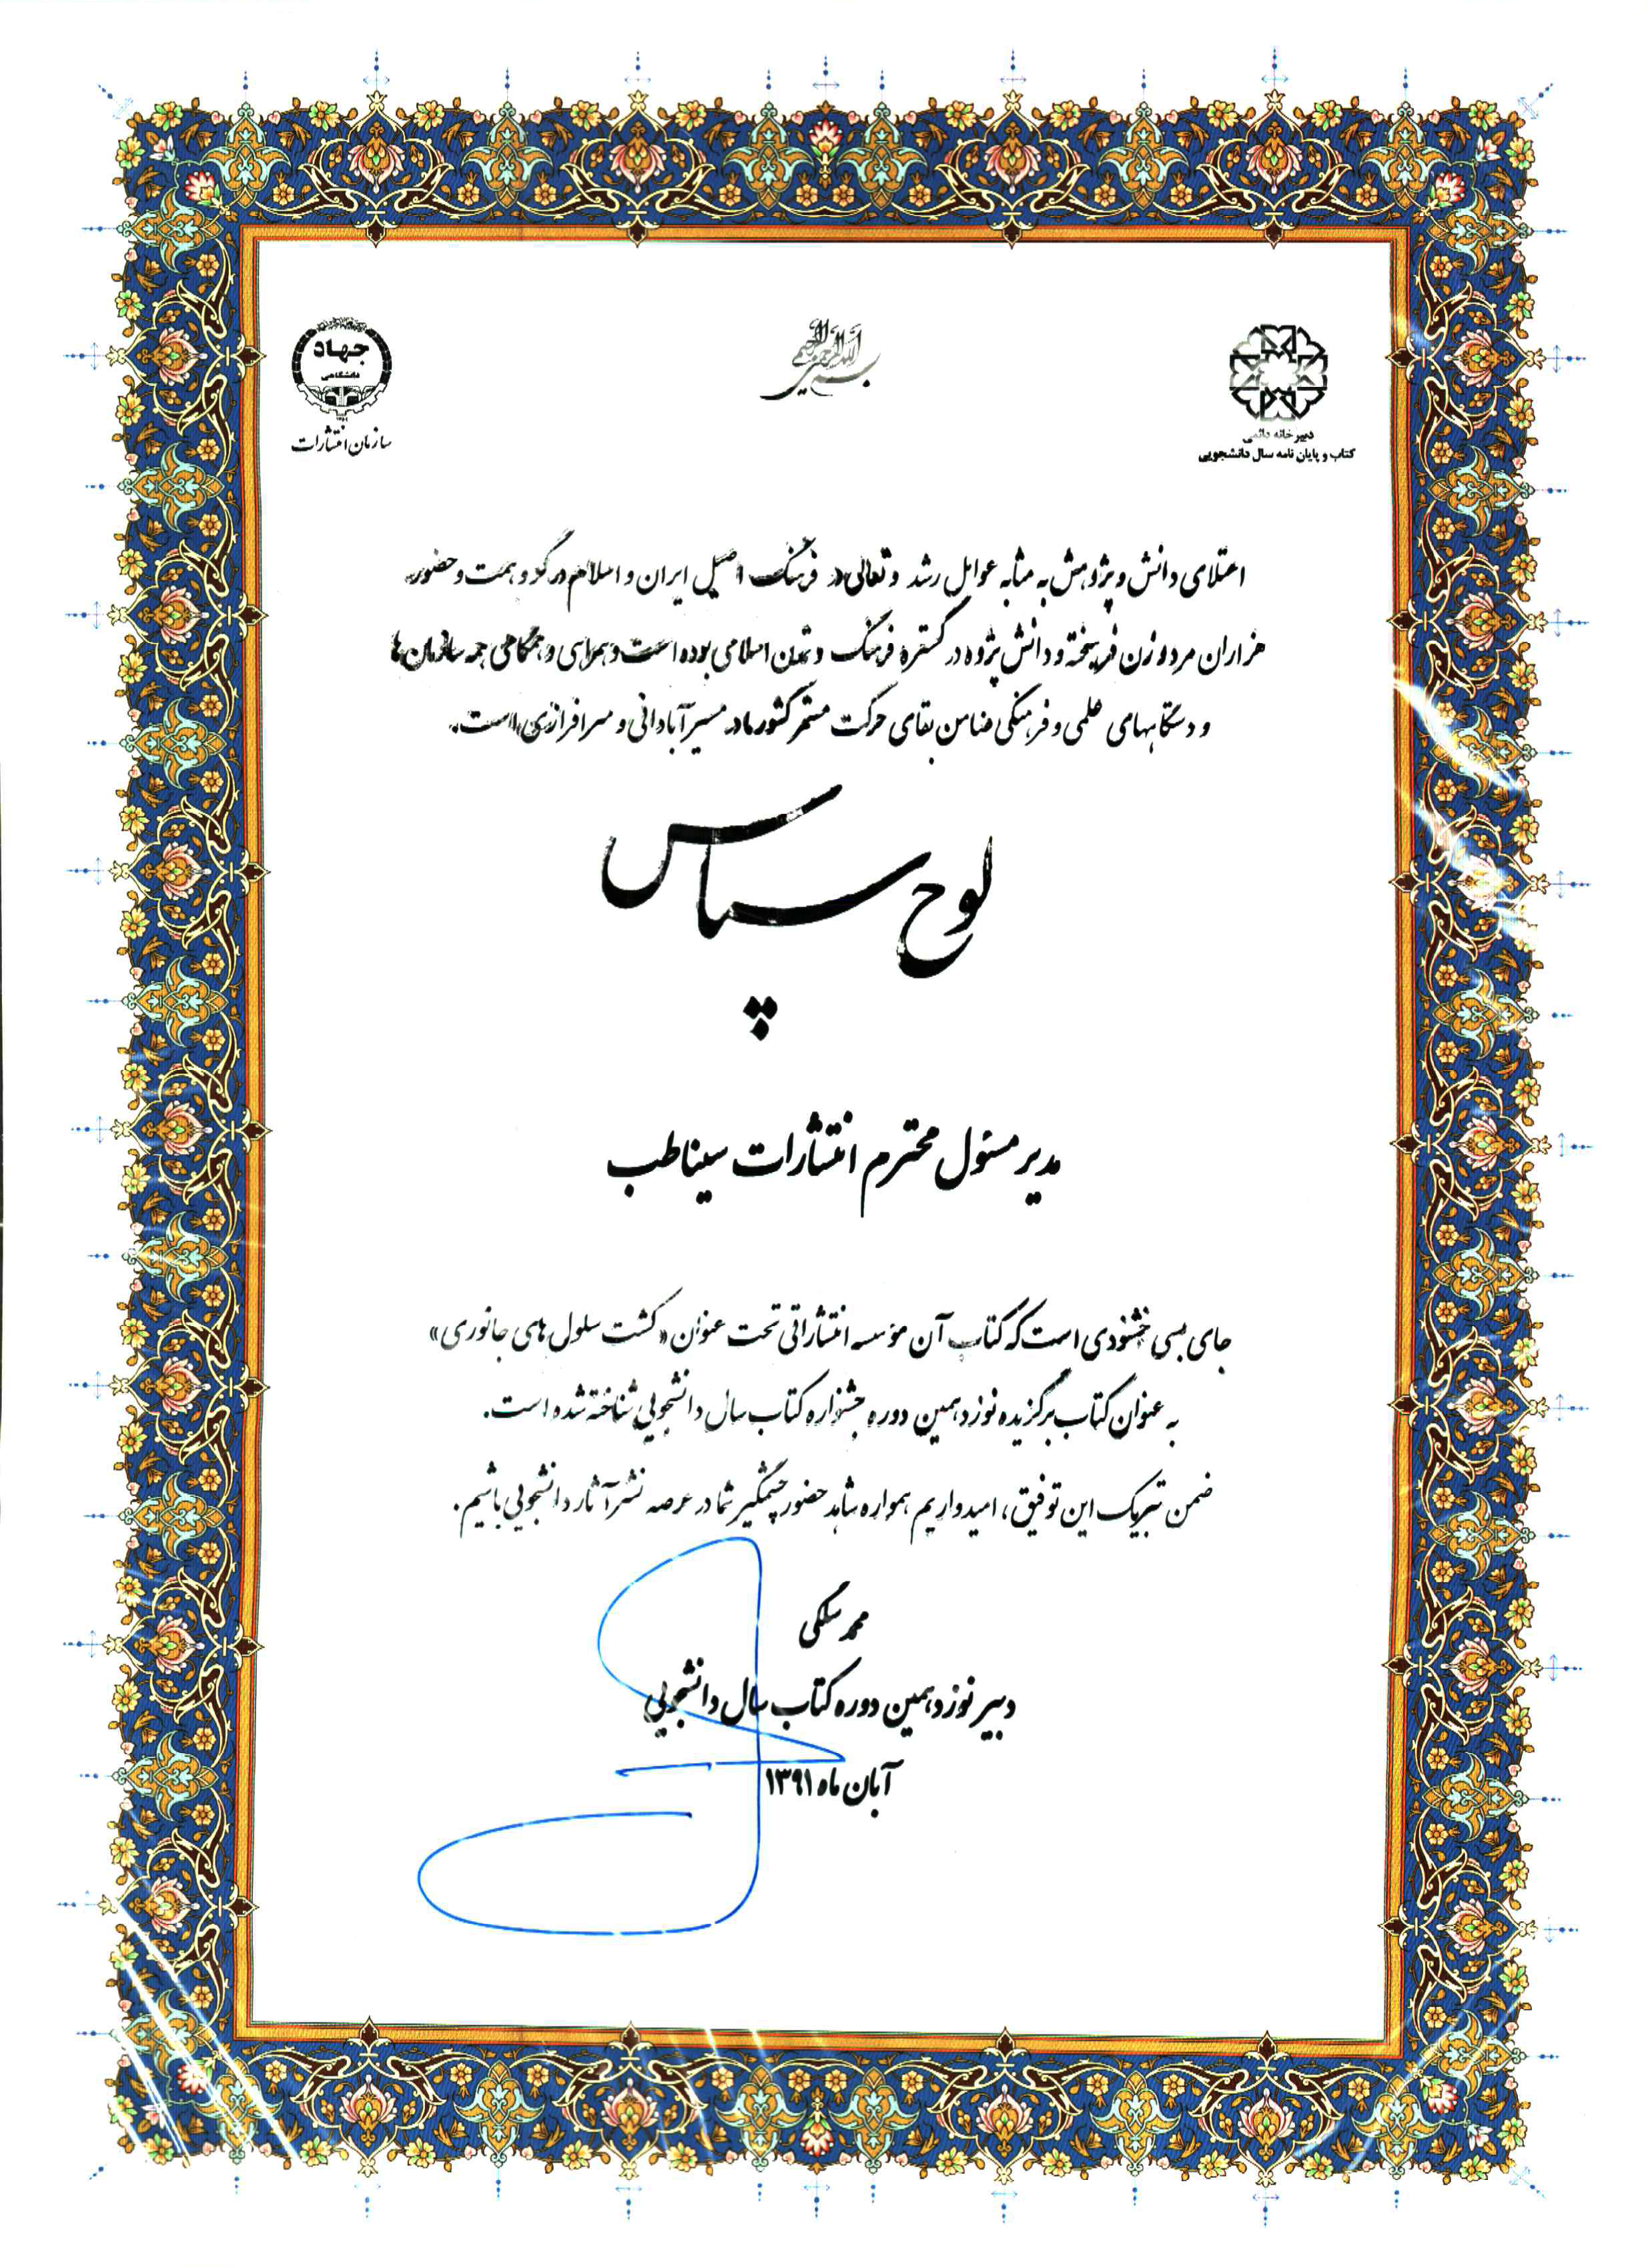 بسم الله الرحمن الرحیم
دبیرخانه دائمی
کتاب و پایان نامه سال دانشجویی
جهاد
دانشگاهی
سازمان انتشارات
اعتلای دانش و پژوهش به مثابه عوامل رشد و تعالی در فرهنگ اصیل ایران و اسلام در گرو همت و حضور
هزاران مرد و زن فرهیخته و دانش پژوه در گستره فرهنگ و تمدن اسلامی بوده است و همراهی و همگامی همه سازمان ها
و دستگاههای علمی و فرهنگی ضامن بقای حرکت مستمر کشور ما در مسیر آبادانی و سرافرازی است.
لوح سپاس
مدیر مسئول محترم انتشارات سیناطب
جای بسی خشنودی است که کتاب آن مؤسسه انتشاراتی تحت عنوان «کشت سلول های جانوری»
به عنوان کتاب برگزیده نوزدهمین دوره جشنواره کتاب سال دانشجویی شناخته شده است.
ضمن تبریک این توفیق، امیدواریم همواره شاهد حضور چشمگیر شما در عرصه نشر آثار دانشجویی باشیم.
محمد سلگی
دبیر نوزدهمین دوره کتاب سال دانشجویی
آبان ماه ۱۳۹۱